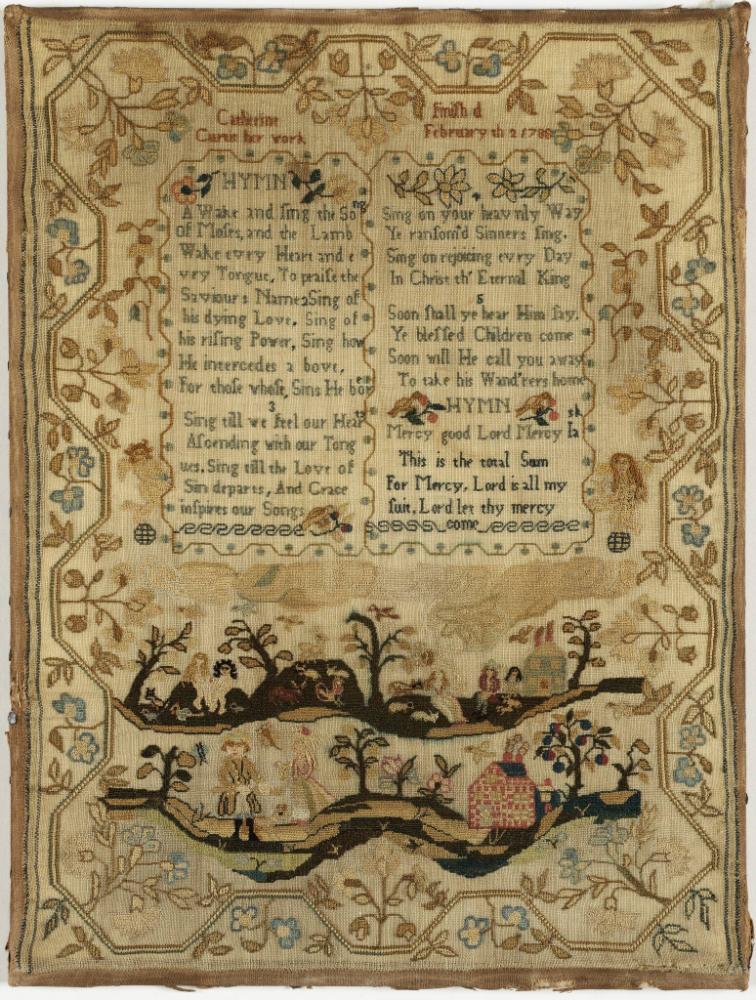 Catherine
her work
Finish d
February th 2 1788
HYMN
A Wake and sing the Song
Of Moses, and the Lamb
Wake evry Heart and e
vry Tongue, To praise the
Saviours Name2Sing of
his dying Love, Sing of
his rising Power, Sing how
He intercedes a bove,
For those whose, Sins He bor
3
Sing till we feel our Heart
Ascending with our Tong
ues. Sing till the Love of
Sin departs, And Grace
inspires our Songs
4
Sing on your heavnly Way
Ye ransom'd Sinners sing.
Sing on rejoicing evry Day
In Christ th' Eternal King
5
Soon shall ye hear Him say,
Ye blessed Children come
Soon will He call you away
To take his Wand'rers home
HYMN
Mercy good Lord Mercy I ask
This is the total Sum
For Mercy, Lord is all my
suit, Lord let thy mercy
come